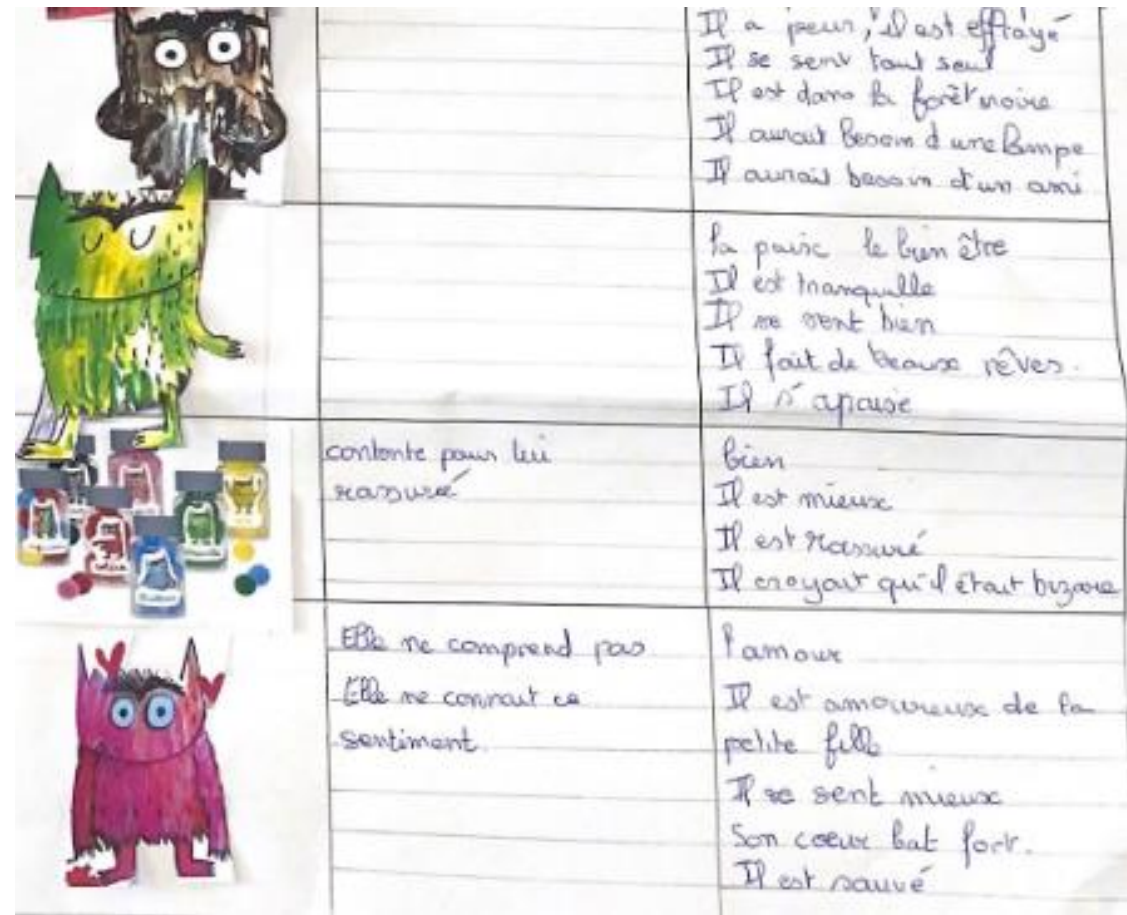 Il a peur, il est effrayé
Il se sent tout seul
Il est dans la forêt noire
Il aurait besoin d'une lampe
Il aurait besoin d'un ami
la paix le bien être
Il est tranquille
Il se sent bien
Il fait de beaux rêves.
Il s'apaise
contente pour lui
rassuré
bien
Il est mieux
Il est rassuré
Il croyait qu'il était bizare
Elle ne comprend pas
Elle ne connait ce
sentiment.
l'amour
Il est amoureux de la
petite fille
Il se sent mieux
Son coeur bat fort.
Il est sauvé